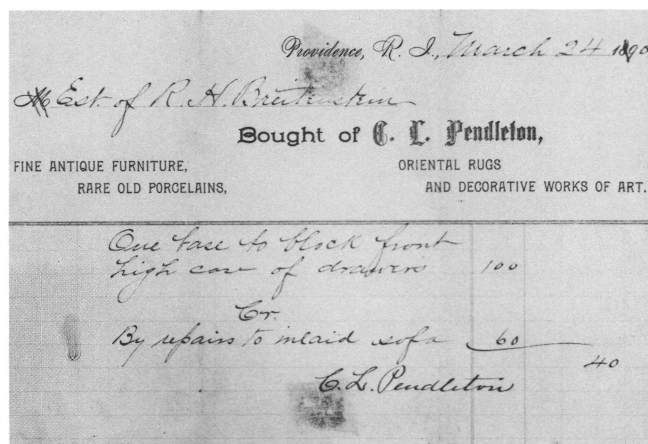 Providence, R. I., March 24 1890
M Est. of R. H. Breitenstein
Bought of C. L. Pendleton,
FINE ANTIQUE FURNITURE,
ORIENTAL RUGS
RARE OLD PORCELAINS,
AND DECORATIVE WORKS OF ART.
One base to block front
high case of drawers 100
Cr.
By repairs to inlaid sofa 60
40
C. L. Pendleton